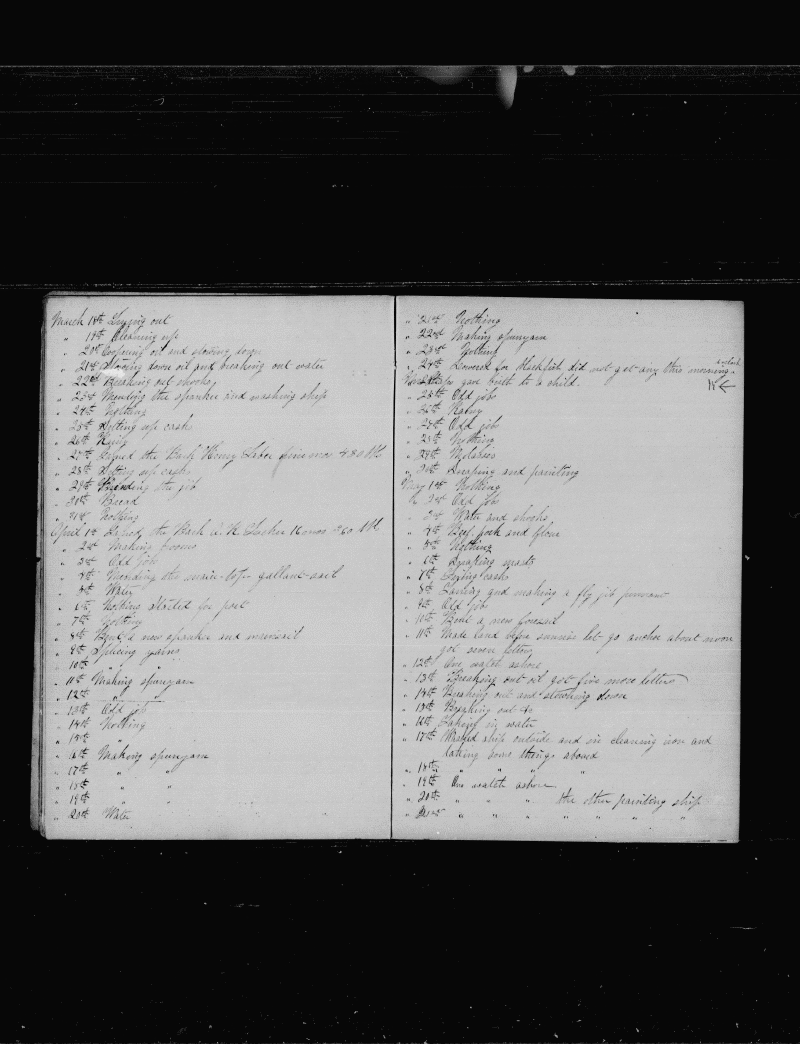 March 18th Trying out
" 19th Cleaning up
" 20th Coopering oil and stowing down
" 21st Stowing down oil and breaking out water
" 22nd Breaking out shooks
" 23rd Mending the spanker and washing ship
" 24th Nothing
" 25th Setting up casks
" 26th Rainy
" 27th the Bark Henry Taber nine mos 480 bbl
" 28th Setting up casks
" 29th Mending the jib
" 30th Bread
" 31st Nothing
April 1st the Bark A. R. Tucker 16 mos 260 bbl
" 2nd Making brooms
" 3rd Odd jobs
" 4th Mending the main-top-gallant-sail
" 5th Water
" 6th Nothing Started for port
" 7th Nothing
" 8th Bent a new spanker and mainsail
" 9th Splicing yarns
" 10th " "
" 11th Making spunyarn
" 12th "
" 13th Odd job
" 14th Nothing
" 15th "
" 16th Making spunyarn
" 17th " "
" 18th " "
" 19th " "
" 20th Water
" 21st Nothing
" 22nd Making spunyarn
" 23rd Nothing
" 24th Lowered for blackfish did not get any this morning.
gave birth to a child.
" 25th Odd jobs
" 26th Rainy
" 27th Odd jobs
" 28th Nothing
" 29th Molasses
" 30th Scraping and painting
May 1st Nothing
" 2nd Odd jobs
" 3rd Water and shooks
" 4th Beef, pork and flour
" 5th Nothing
" 6th Scraping masts
" 7th casks
" 8th and making a fly jib pennant
" 9th Odd jobs
" 10th Bent a new foresail
" 11th Made land before sunrise let go anchor about noon
got seven letters
" 12th One watch ashore
" 13th Breaking out oil got five more letters
" 14th Breaking out and stowing down
" 15th Breaking out &c
" 16th Taking in water
" 17th Washed ship outside and in cleaning iron and
taking some things aboard
" 18th " " " "
" 19th One watch ashore
" 20th " " " the other painting ship
" 21st " " " " " " "